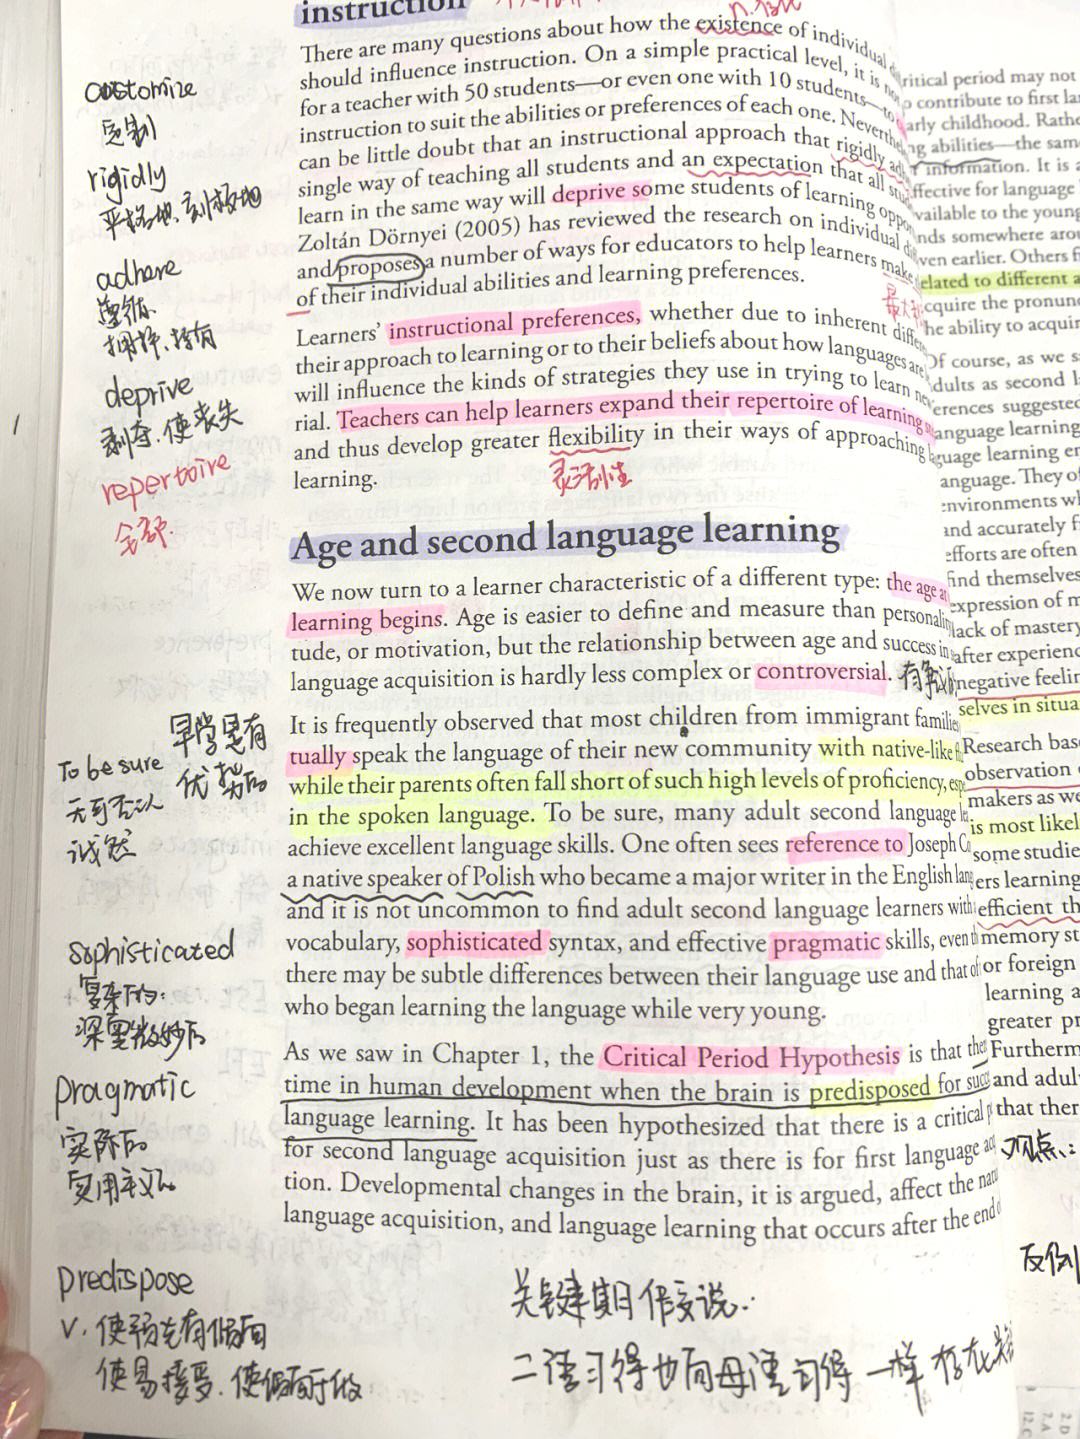 instruction
There are many questions about how the existence of individual
should influence instruction. On a simple practical level, it is
for a teacher with 50 students—or even one with 10 students—to
instruction to suit the abilities or preferences of each one.
can be little doubt that an instructional approach that rigidly
single way of teaching all students and an expectation that all
learn in the same way will deprive some students of learning
Zoltán Dörnyei (2005) has reviewed the research on individual
and proposes a number of ways for educators to help learners make
of their individual abilities and learning preferences.
Learners' instructional preferences, whether due to inherent
their approach to learning or to their beliefs about how languages are
will influence the kinds of strategies they use in trying to learn
rial. Teachers can help learners expand their repertoire of learning
and thus develop greater flexibility in their ways of approaching
learning.
灵活性
Age and second language learning
We now turn to a learner characteristic of a different type: the age
learning begins. Age is easier to define and measure than
tude, or motivation, but the relationship between age and success in
language acquisition is hardly less complex or controversial.
It is frequently observed that most children from immigrant
tually speak the language of their new community with native-like
while their parents often fall short of such high levels of proficiency,
in the spoken language. To be sure, many adult second language
achieve excellent language skills. One often sees reference to Joseph
a native speaker of Polish who became a major writer in the English
and it is not uncommon to find adult second language learners with
vocabulary, sophisticated syntax, and effective pragmatic skills, even
there may be subtle differences between their language use and that of
who began learning the language while very young.
As we saw in Chapter 1, the Critical Period Hypothesis is that
time in human development when the brain is predisposed for
language learning. It has been hypothesized that there is a critical
for second language acquisition just as there is for first language
tion. Developmental changes in the brain, it is argued, affect the
language acquisition, and language learning that occurs after the end
customize
定制
rigidly
严格地、刻板地
adhere
遵循
拥护、持有
deprive
剥夺、使丧失
repertoire
早学是有
优势的
To be sure
无可否认
诚然
sophisticated
复杂的;
深奥微妙的
pragmatic
实际的
实用主义的
predispose
v. 使预先有倾向
使易接受、使倾向于做
关键期假说:
二语习得也同母语习得一样存在
critical period may not
contribute to first
early childhood.
abilities—the same
information. It is
effective for language
available to the young
somewhere
even earlier. Others
related to different
acquire the
the ability to
Of course, as we
adults as second
suggested
language learning
language learning
language. They
environments
and accurately
efforts are often
find themselves
expression of
lack of mastery
after
negative
selves in
Research
observation
makers as we
is most
some
learning
efficient
memory
or foreign
learning
greater
and
that
观点:
反例